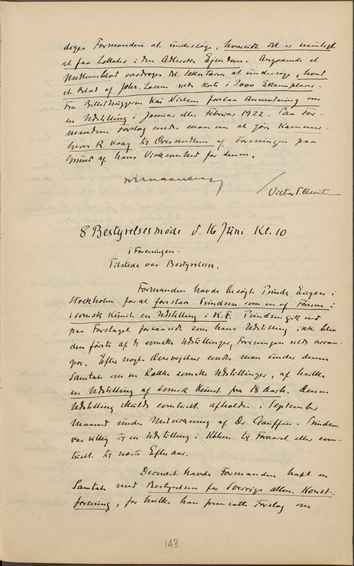 drages Formanden at undersøge, hvorvidt det er muligt
at faa Lokaler i den Ejendom. Angaaende et
overdroges det Sekretæren at undersøge, hvad
et Oplag af Johs. vil koste i 1000 Exemplarer.
Fra Billedhuggeren Kai Nielsen forelaa Anmodning om
en Udstilling i Januar eller Februar 1922. Paa For-
mandens Forslag vedtoges man at gøre Kammer-
herre R. Kaag til Æresmedlem af Foreningen paa
Grund af hans Virksomhed for denne.
8 Bestyrelsesmøde d. 16 Juni Kl. 10
i Foreningen.
Tilstede var Bestyrelsen.
Formanden havde besøgt Prinds Eugen i
Stockholm for at foreslaa Prindsen som en af
svensk Kunst en Udstilling i K.F. Prindsen gik ind
paa Forslaget forudsat som hans Udstilling ikke blev
den første af de svenske Udstillinger, Foreningen vilde arran-
gere. Efter nogle Overvejelser enedes man under denne
Samtale om en Række svenske Udstillinger, af hvilke
en Udstilling af svensk Kunst fra 18 Aarh. denne
Udstilling skulde eventuelt afholdes i September
Maaned under Medvirkning af Dr. Gauffin. Prindsen
var villig til en Udstilling i Købhn. til Foraaret eller even-
tuelt til næste Efteraar.
Desuden havde Formanden haft en
Samtale med Bestyrelsen for Sveriges allm. Konst-
förening, for hvilke han fremsatte Forslag om
143